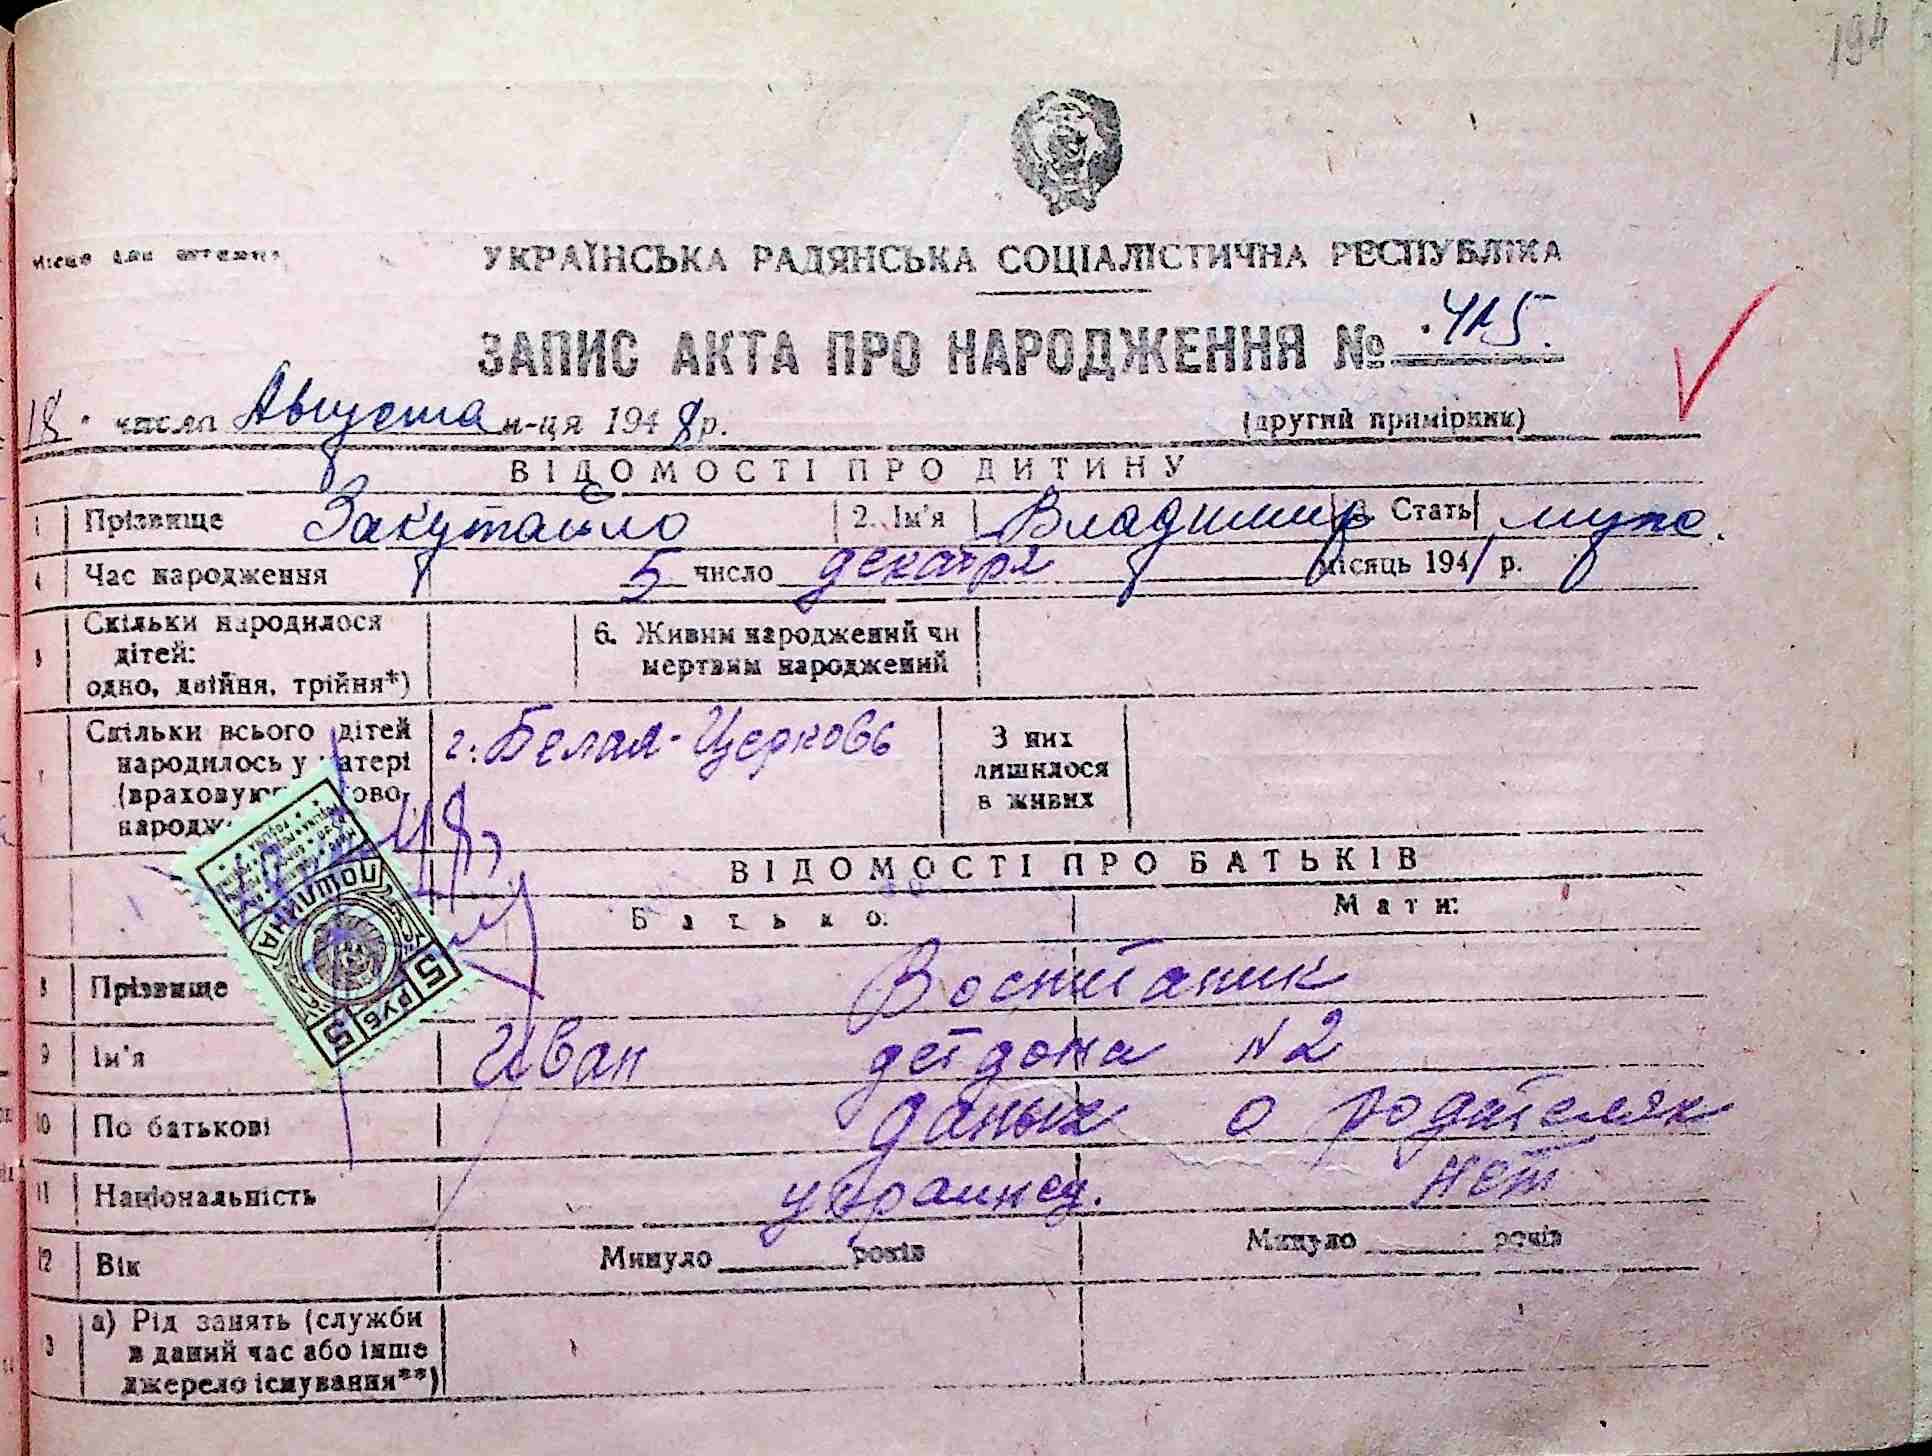 194
місце для штампа
УКРАЇНСЬКА РАДЯНСЬКА СОЦІАЛІСТИЧНА РЕСПУБЛІКА
ЗАПИС АКТА ПРО НАРОДЖЕННЯ № 415.
18 числа Августа м-ця 1948 р. (другий примірник)
ВІДОМОСТІ ПРО ДИТИНУ
1 Прізвище 2. Ім'я Владимир 3. Стать муж.
4 Час народження 5 число декабря місяць 1941 р.
5 Скільки народилося дітей: одно, двійня, трійня*) 6. Живим народжений чи мертвим народжений
7 Скільки всього дітей народилось у матері г. Белая-Церковь З них лишилося в живих
ВІДОМОСТІ ПРО БАТЬКІВ
Батько: Мати:
8 Прізвище Воспитаник
9 Ім'я Иван детдома №2
10 По батькові даных о родителях
11 Національність украинец. нет
12 Вік Минуло років Минуло років
3 а) Рід занять (служби в даний час або інше джерело існування**)
ПОШЛИНА
5 РУБ 5